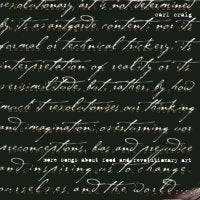 carl craig
revolutionary art is not determined
by its avantgarde content, nor its
formal or technical trickery, its
interpretation of reality or its
verisimilitude, but, rather, by how
much it revolutionises our thinking
and imagination, overturning our
preconceptions, bias and prejudice
more songs about food and revolutionary art
and inspiring us to change
ourselves and the world...